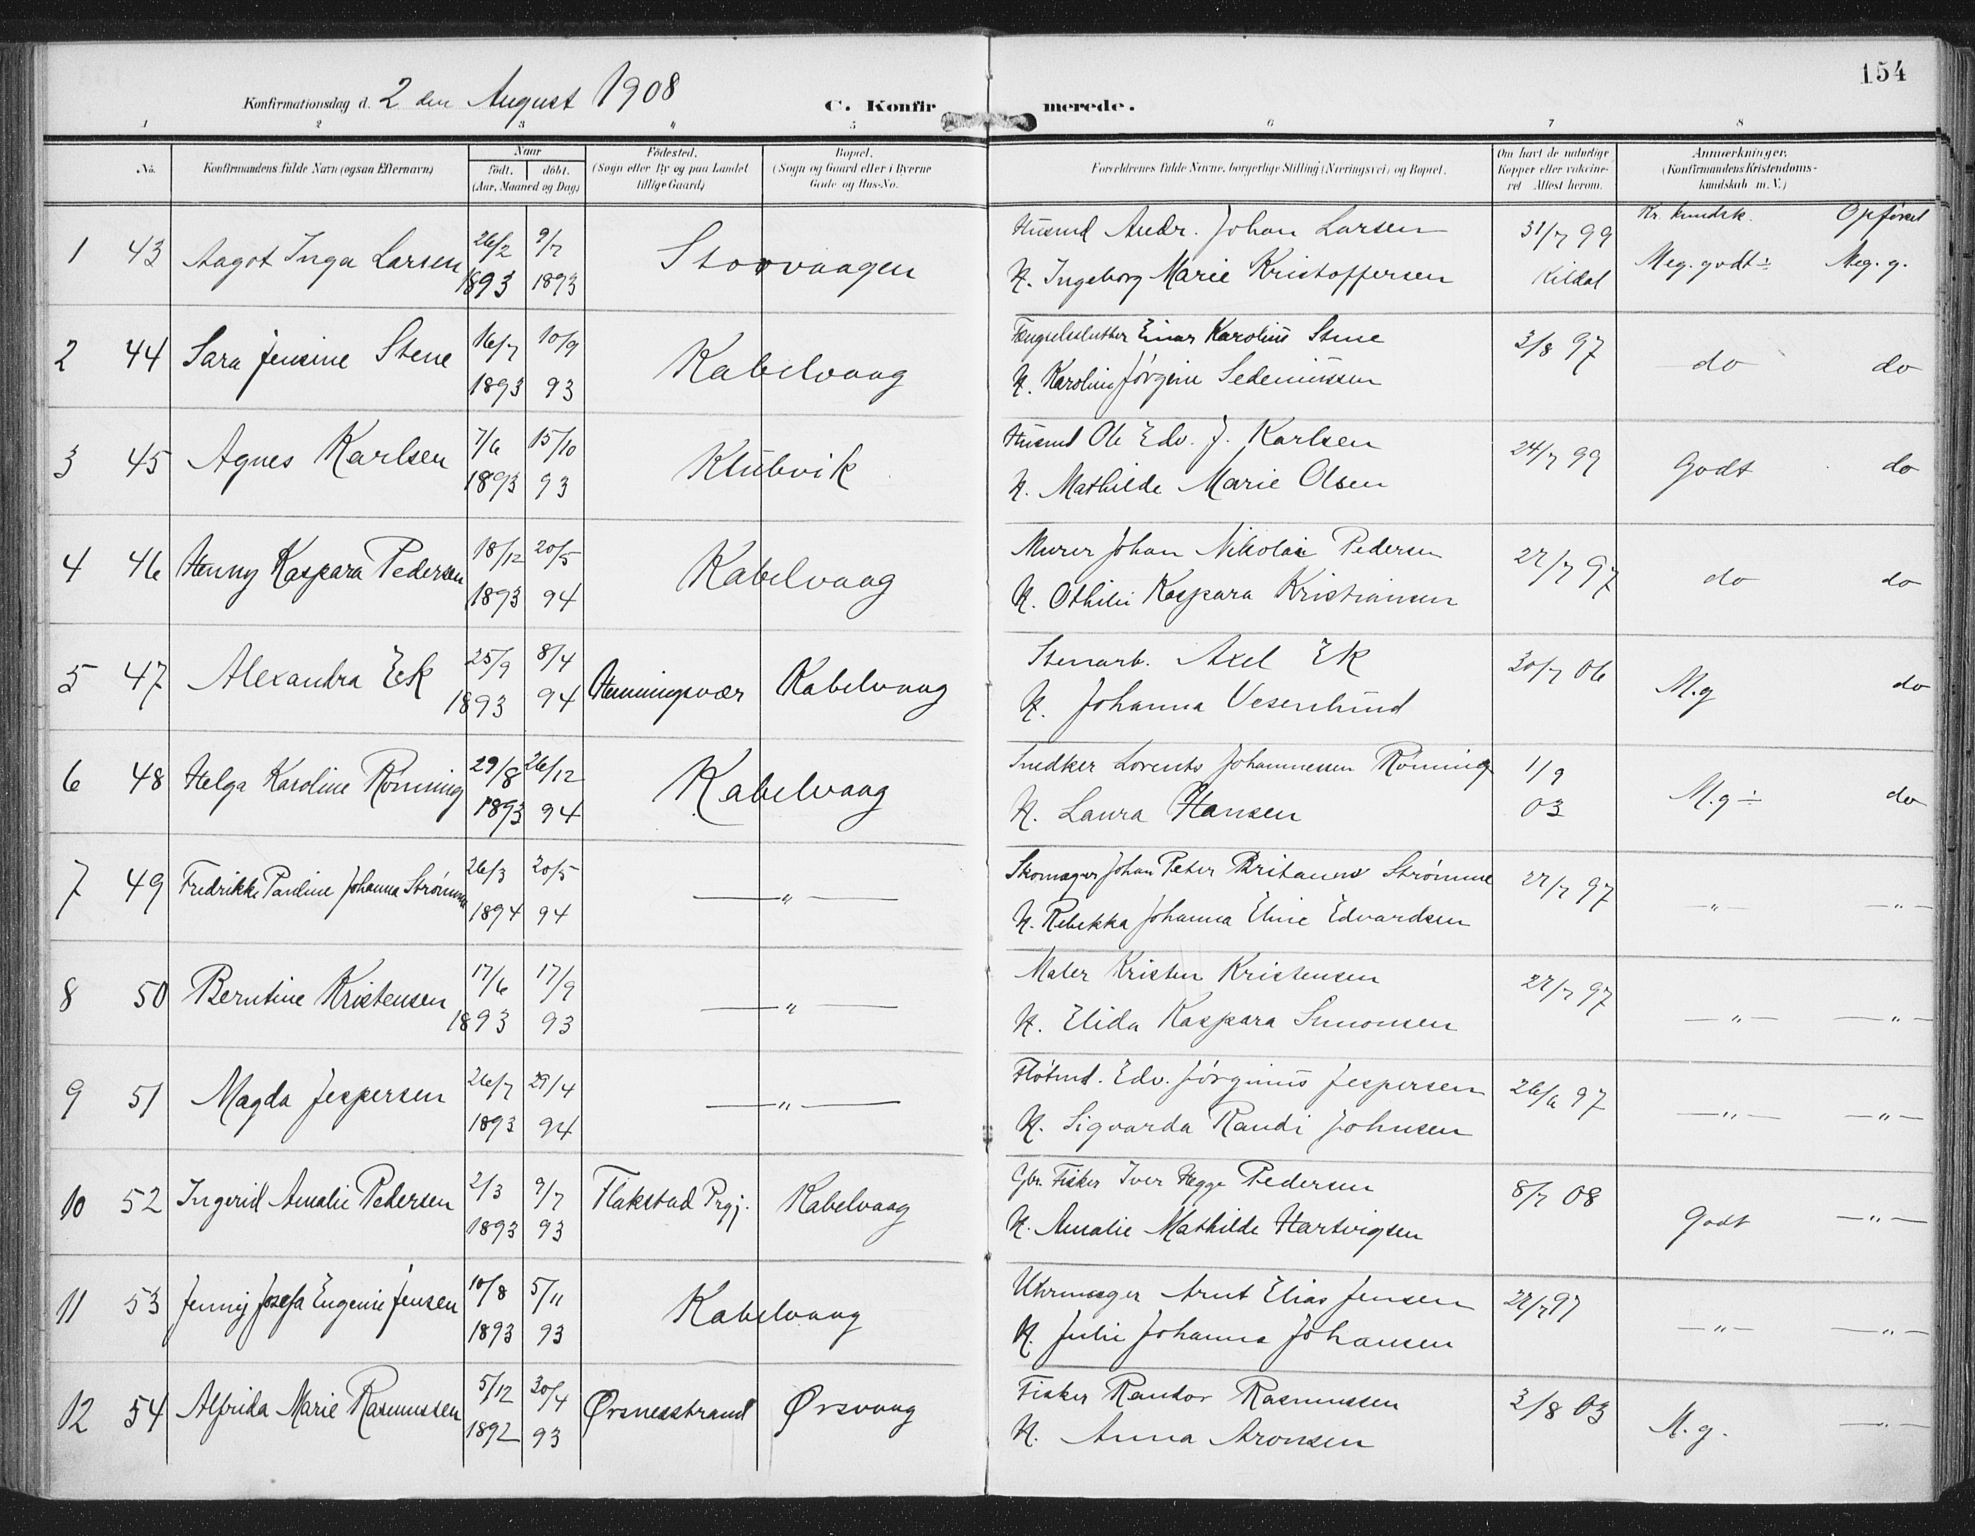 154
Konfirmationsdag d. 2 den August 1908
C. Konfirmerede.
1 2 3 4 5 6 7 8
No.
Konfirmandens fulde Navn (ogsaa Efternavn)
Naar
født. døbt.
(Aar, Maaned og Dag)
Fødested.
(Sogn eller By og paa Landet
tillige Gaard)
Bopæl.
(Sogn og Gaard eller i Byerne
Gade og Hus-No.
Forældrenes fulde Navne, borgerlige Stilling (Næringsvei) og Bopæl.
Om havt de naturlige
Kopper eller vakcine-
ret Attest herom.
Anmærkninger.
(Konfirmandens Kristendoms-
kundskab m. V.)
Kr. kundsk. Opførsel
1 43 Aagot Inga Larsen 26/2 1893 9/7 1893 Storvaagen
Husmd Andr. Johan Larsen
H. Ingeborg Marie Kristoffersen
31/7 99 Kildal Meg. godt ÷ Meg. g.
2 44 Sara Jensine Stene 16/7 1893 10/9 93 Kabelvaag
Einar Karolius Stene
H. Karoline Jørgine
3/8 97 do do
3 45 Agnes Karlsen 7/6 1893 15/10 93 Klubvik
Husmd Ole Edv. J. Karlsen
H. Mathilde Marie Olsen
24/7 99 Godt do
4 46 Henny Kaspara Pedersen 18/12 1893 20/5 94 Kabelvaag
Murer Johan Nikolai Pedersen
H. Othilie Kaspara Kristiansen
27/7 97 do do
5 47 Alexandra Ek 25/9 1893 8/4 94 Henningsvær Kabelvaag
Stenarb. Axel Ek
H. Johanna Vesenlund
30/7 06 M.g do
6 48 Helga Karoline Rønning 29/8 1893 26/12 94 Kabelvaag
Snedker Lorents Johannessen Rønning
H. Laura Hansen
1/9 03 M.g ÷ do
7 49 Fredrikke Pauline Johanna Strømme 26/3 1894 20/5 94 — " —
Skomager Johan Peter Strømme
H. Rebekka Johanna Eline Edvardsen
27/7 97 — " — — " —
8 50 Berntine Kristensen 17/6 1893 17/9 93 — " —
Maler Kristen Kristensen
H. Elida Kaspara Simonsen
27/7 97 — " — — " —
9 51 Magda Jespersen 26/7 1893 29/4 94 — " —
Fløtmd. Edv. Jørginius Jespersen
H. Sigvarda Randi Johnsen
26/6 97 — " — — " —
10 52 Ingerid Amalie Pedersen 2/3 1893 9/7 93 Flakstad Prgj. Kabelvaag
Gbr. Fisker Iver Hegge Pedersen
H. Amalie Mathilde Hartvigsen
8/7 08 Godt — " —
11 53 Jenny Josefa Eugenie Jensen 10/8 1893 5/11 93 Kabelvaag
Uhrmager Arnt Elias Jensen
H. Julie Johanna Johansen
27/7 97 — " — — " —
12 54 Alfrida Marie Rasmussen 5/12 1892 30/4 93 Ørsnesstrand Ørsvaag
Fisker Randor Rasmussen
H. Anna Aronsen
3/8 03 M.g. — " —